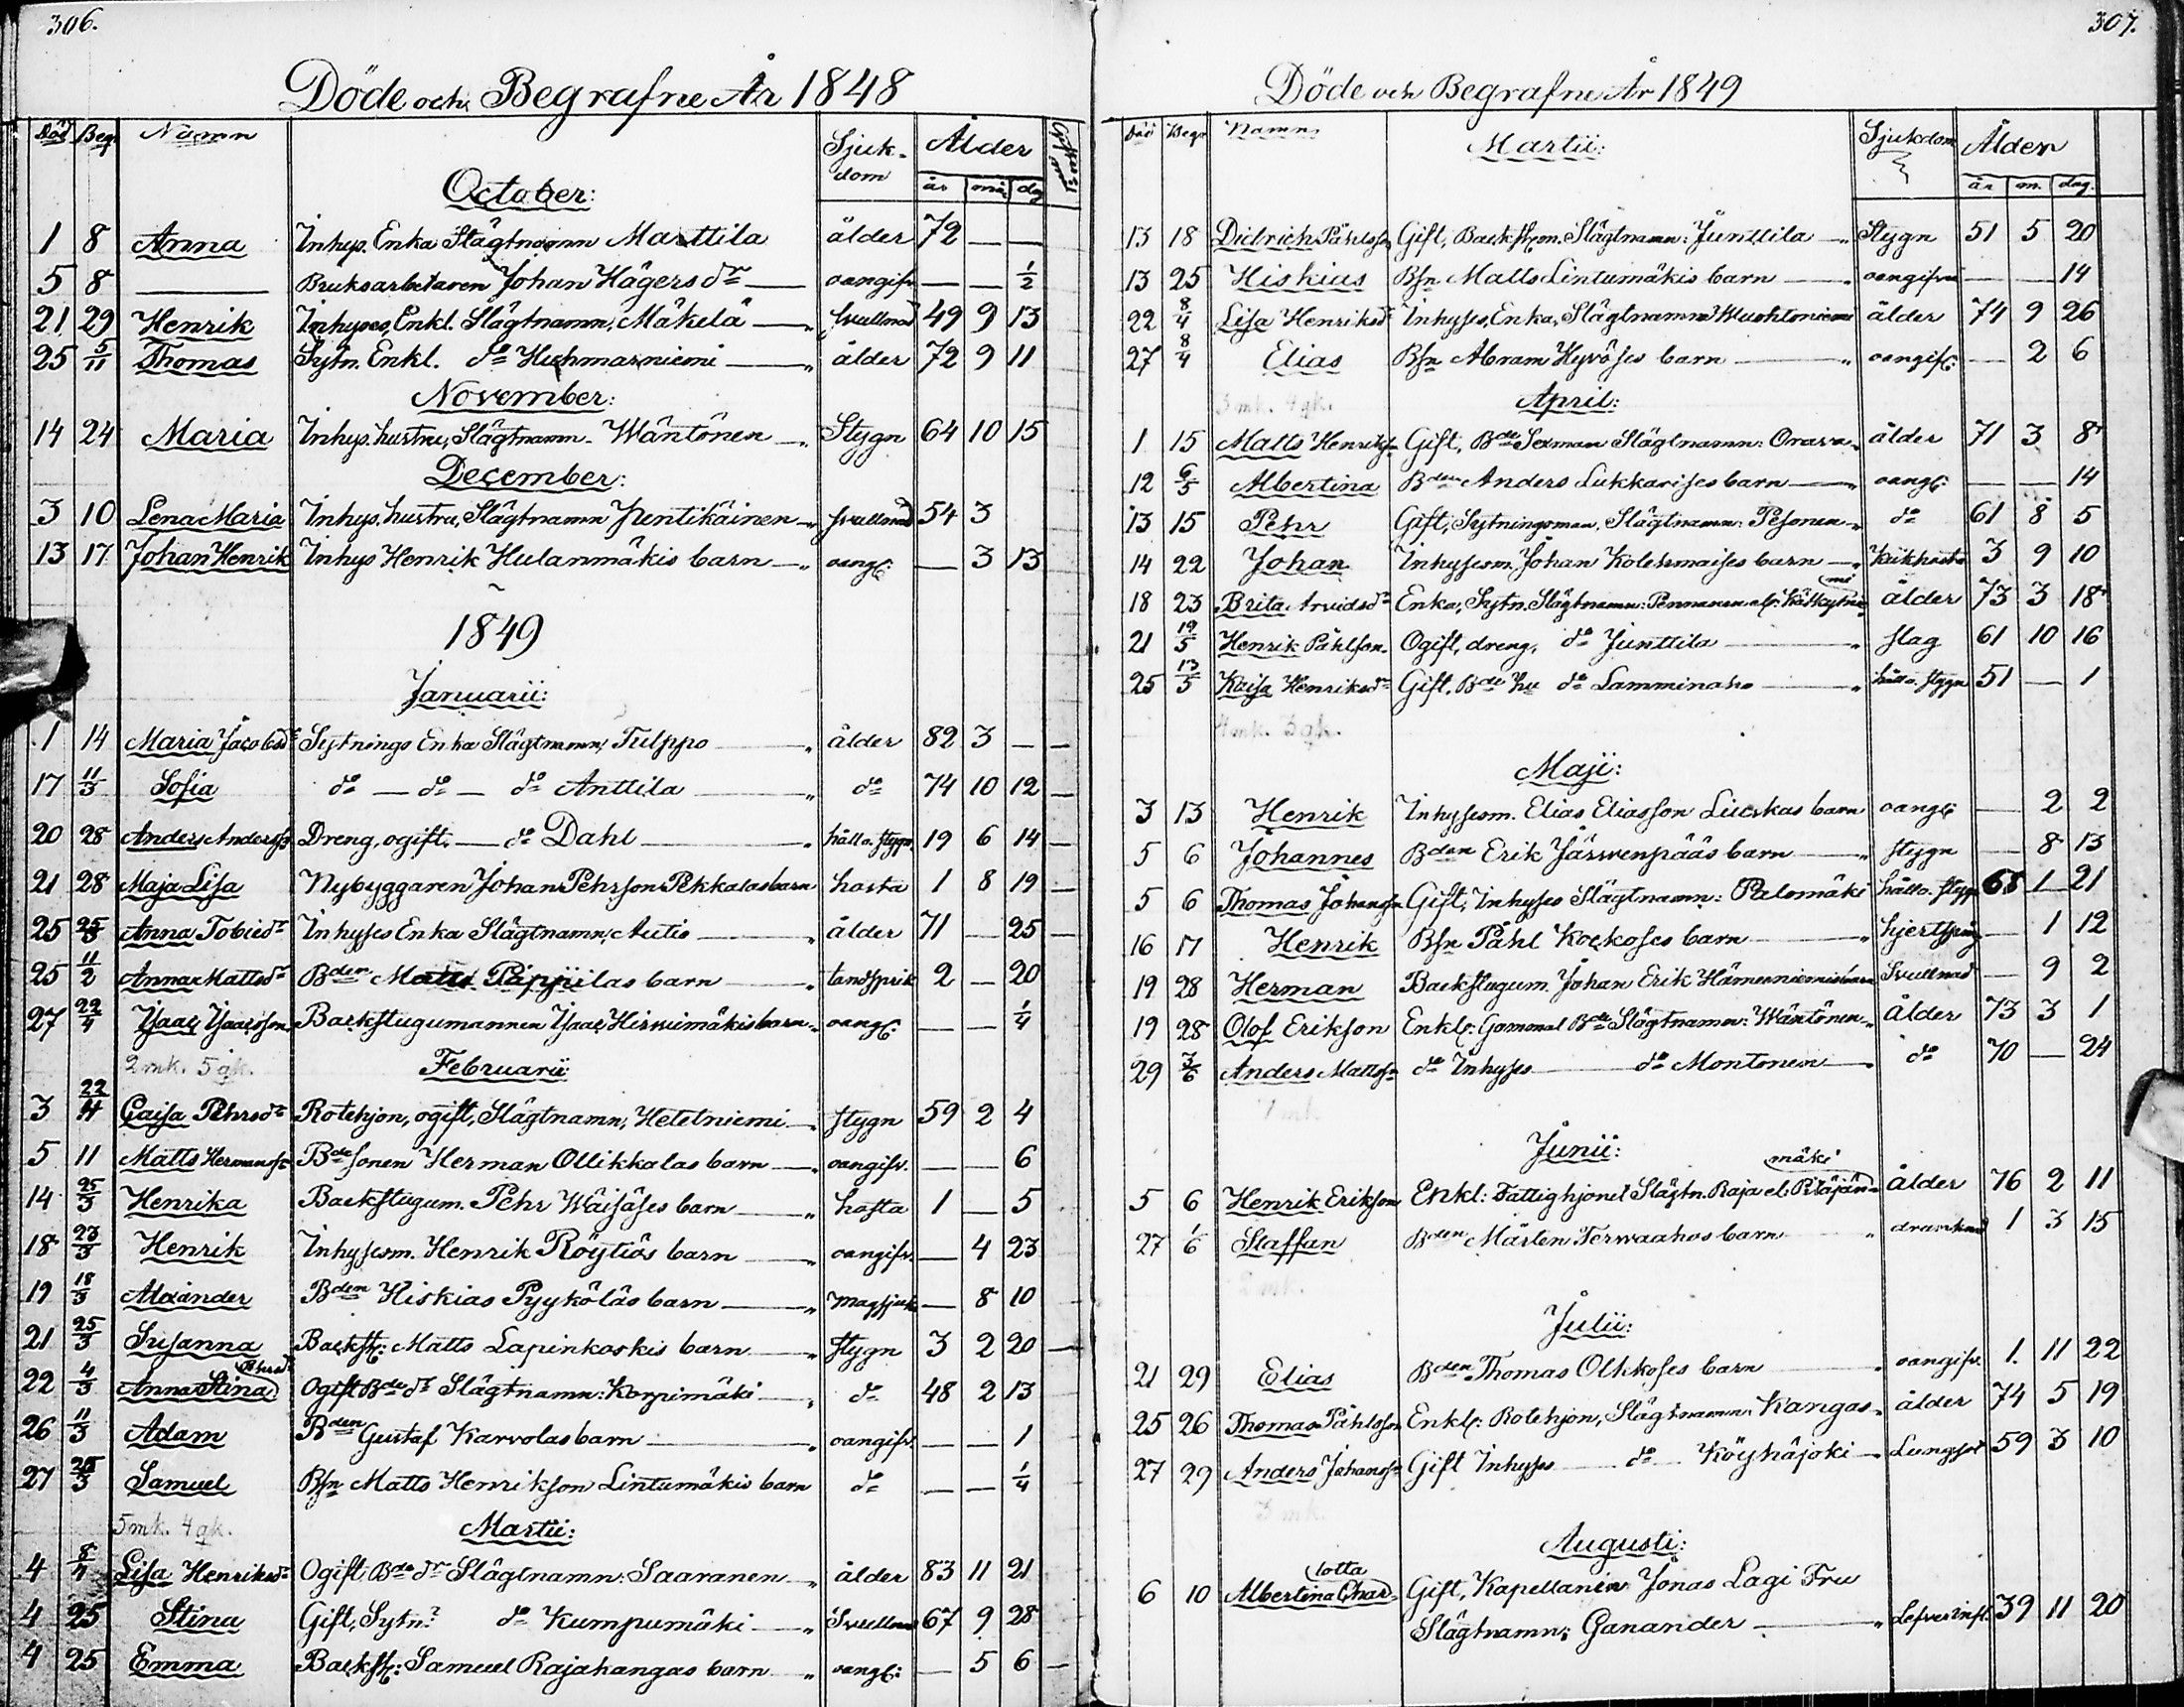 306.
Döde och Begrafne År 1848
Död Begr. Namn Sjukdom Ålder
år mån dag
October:
1 8 Anna Inhys. Enka Slägtnamn Marttila ålder 72 — —
5 8 — Bruksarbetaren Johan Hägers dr — oangifv. — — 1/2
21 29 Henrik Inhyses, Enkl. Slägtnamn, Mäkelä — svullnad 49 9 13
25 5/11 Thomas Sytn. Enkl. do Huhmarniemi — ålder 72 9 11
November:
14 24 Maria Inhys. hustru, Slägtnamn Wäntönen — Stygn 64 10 15
December:
3 10 Lena Maria Inhys. hustru, Slägtnamn Pentikäinen svullnad 54 3
13 17 Johan Henrik Inhys Henrik Hulanmäkis barn — oangf: — 3 13
1849
Januarii:
1 14 Maria Jacobsdr Sytnings Enka Slägtnamn, Tulppo — ålder 82 3 —
17 11/3 Sofia do — do — do Anttila — do 74 10 12
20 28 Anders Anderss. Dreng, ogift, — do Dahl — håll o. stygn 19 6 14
21 28 Maja Lisa Nybyggaren Johan Pehrson Pekkalas barn hosta 1 8 19
25 25/3 Anna Tobiedr Inhyses Enka Slägtnamn, Autio — ålder 71 — 25
25 11/2 Anna Mattsdr Bden Matts Päpyilas barn — tandsprik 2 — 20
27 22/4 Isaac Isacsson Backstugumannen Isaac Hirvimäkis barn oangf: — — 1/4
2 mk. 5 qk.
Februarii
3 22/4 Caisa Pehrsdr Rotehjon, ogift, Slägtnamn, Hetetniemi — stygn 59 2 4
5 11 Matts Hermanss. Bdesonen Herman Ollikkalas barn — oangifv. — — 6
14 25/3 Henrika Backstugum. Pehr Wäisäses barn — hosta 1 — 5
18 23/3 Henrik Inhysesm. Henrik Röytiös barn — oangifv. — 4 23
19 18/3 Alexander Bden Hiskias Pyyköläs barn — magsjuk — 8 10
21 25/3 Susanna Backst: Matts Lapinkoskis barn — stygn 3 2 20
Pehrsdr
22 4/3 Anna Stina Ogift Bde dr Slägtnamn: Korpimäki — do 48 2 13
26 11/3 Adam Bden Gustaf Karvolas barn — oangifv. — — 1
27 25/3 Samuel Bsn Matts Henrikson Lintumäkis barn do — — 1/4
5 mk. 4 qk.
Martii:
4 8/4 Lisa Henriksdr Ogift, Bde dr Slägtnamn: Saaranen ålder 83 11 21
4 25 Stina Gift, Sytn. do Kumpumäki — Svullnad 67 9 28
4 25 Emma Backst: Samuel Rajakangas barn oangf: — 5 6
307.
Döde och Begrafne År 1849
Död Begr Namn Sjukdom Ålder
år m. dag.
Martii:
13 18 Didrich Påhlsson Gift, Backst.m. Slägtnamn: Junttila — Stygn 51 5 20
13 25 Hiskias Bsn Matts Lintumäkis barn — oangifven — — 14
22 8/4 Lisa Henriksdr Inhyses, Enka, Slägtnamn ålder 74 9 26
27 8/4 Elias Bsn Abram Hyvöses barn — oangifv: — 2 6
3 mk. 4 qk.
April:
1 15 Matts Henrikss. Gift, Bde Sexman Slägtnamn: Orava ålder 71 3 8
12 6/5 Albertina Bden Anders Lukkarises barn — oangf: — — 14
13 15 Pehr Gift, Sytningsman, Slägtnamn: Pesonen do 61 8 5
14 22 Johan Inhysesm. Johan Kolehmaises barn — Kikhosta 3 9 10
mi
18 23 Brita Arvidsdr Enka, Sytn. Slägtnamn: Pennanen el: Kätkytnie ålder 73 3 18
21 19/5 Henrik Påhlson Ogift, dreng, do Junttila — slag 61 10 16
25 13/5 Kaisa Henriksdr Gift, Bde hu do Lamminaho — håll o. stygn 51 — 1
4 mk. 3 qk.
Maji:
3 13 Henrik Inhysesm. Elias Eliasson barn oangf: — 2 2
5 6 Johannes Bden Erik Järwenpääs barn — stygn — 8 13
5 6 Thomas Johansson Gift, Inhyses Slägtnamn: Palomäki håll o. stygn 65 1 21
16 17 Henrik Bsn Påhl Kockoses barn — hjertspång — 1 12
19 28 Herman Backstugum. Johan Erik Hämeenniemis barn Svullnad — 9 2
19 28 Olof Erikson Enkl: Gammal Bde Slägtnamn: Wäntönen ålder 73 3 1
29 3/6 Anders Mattss. do Inhyses — do Montonen — do 70 — 24
7 mk.
Junii:
mäki
5 6 Henrik Erikson Enkl: Fattighjonet Slägtn. Raja el: Pitäjän ålder 76 2 11
27 1/6 Staffan Bden Mårten Terwaahos barn drunknad 1 3 15
2 mk.
Julii:
21 29 Elias Bden Thomas Olkkoses barn oangifv. 1 11 22
25 26 Thomas Påhlsson Enkl: Rotehjon, Slägtnamn: Kangas ålder 74 5 19
27 29 Anders Johanss. Gift Inhyses — do Köyhäjoki — Lungsot 59 3 10
3 mk.
Augusti:
lotta
6 10 Albertina Char- Gift, Kapellanen Jonas Lagi Fru
Slägtnamn: Ganander — Lefverinfl. 39 11 20